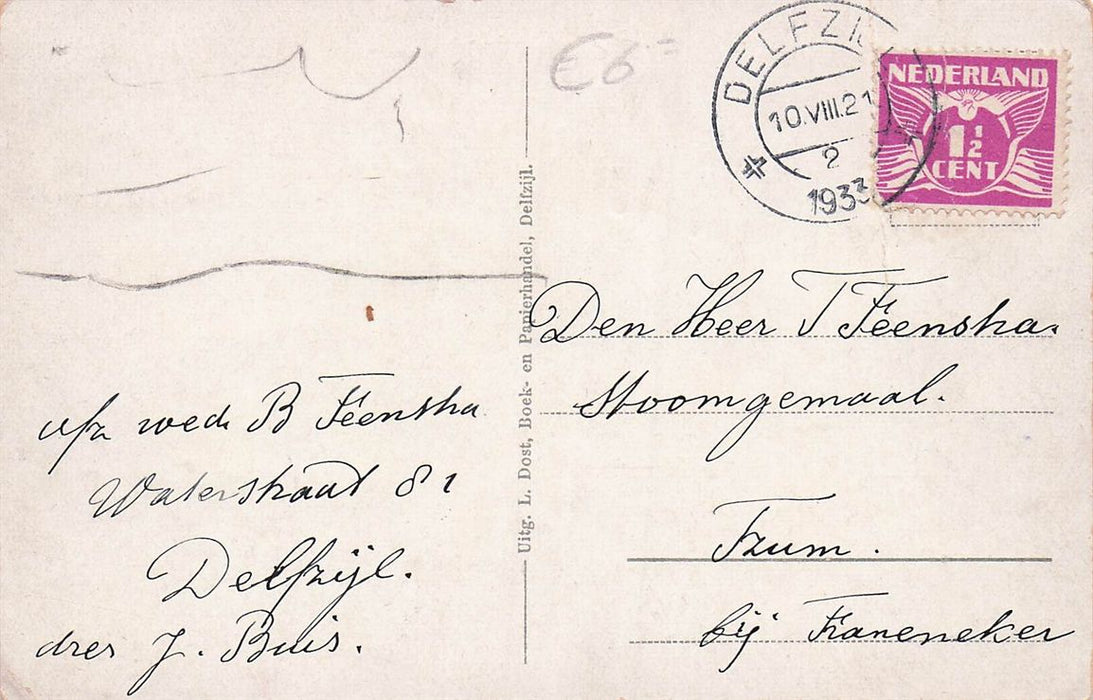 €6=
DELFZIJL
10.VIII.21
2
1933
NEDERLAND
1½
CENT
Uitg. L. Dost, Boek- en Papierhandel, Delfzijl.
Den Heer T Feenstra.
Stoomgemaal.
Tzum.
bij Franeneker
a/z wed. B Feenstra
Waterstraat 81
Delfzijl.
dres J. Buis.